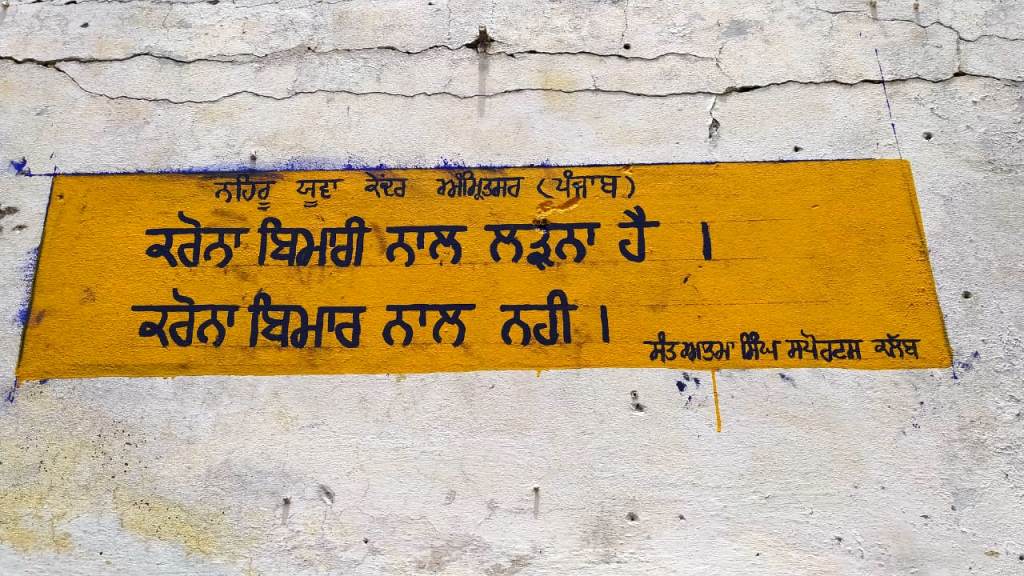 ਨਹਿਰੂ ਯੂਵਾ ਕੇਂਦਰ ਅੰਮ੍ਰਿਤਸਰ (ਪੰਜਾਬ)
ਕਰੋਨਾ ਬਿਮਾਰੀ ਨਾਲ ਲੜ੍ਹਨਾ ਹੈ ।
ਕਰੋਨਾ ਬਿਮਾਰ ਨਾਲ ਨਹੀ ।
ਸੰਤ ਆਤਮਾ ਸਿੰਘ ਸਪੋਰਟਸ ਕਲੱਬ